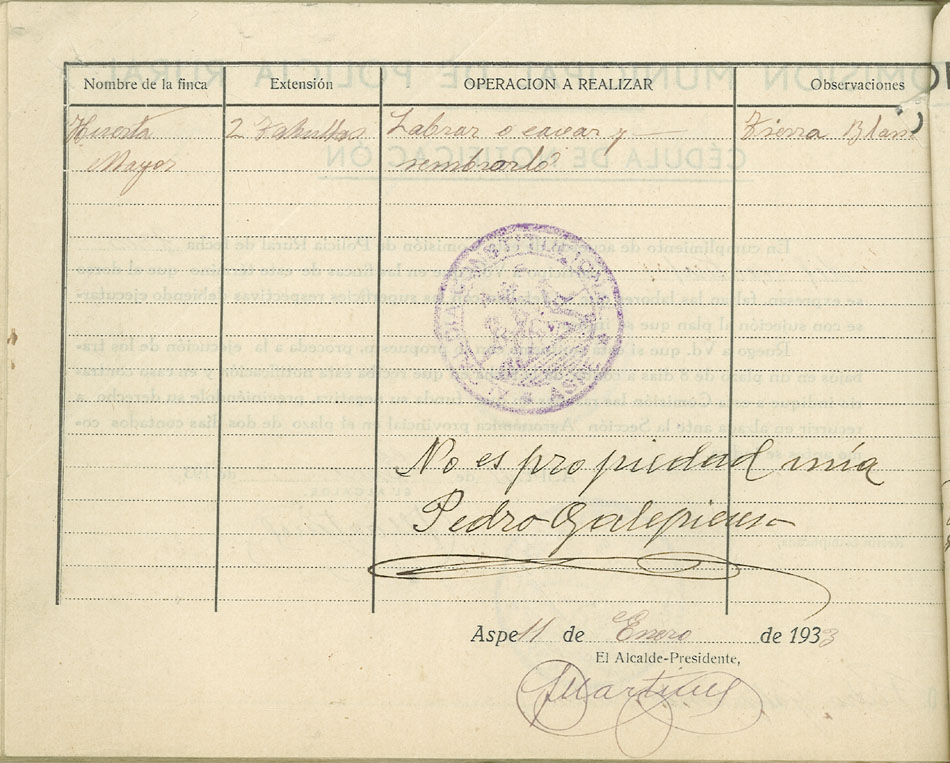 Nombre de la finca Extensión OPERACION A REALIZAR Observaciones
Huerta 2 Tahullas Labrar o cavar y — Tierra Blan
Mayor sembrarlo
ALCALDIA CONSTITUCIONAL * ASPE *
No es propiedad mía
Pedro Galepienso
Aspe 11 de Enero de 1933
El Alcalde-Presidente,
JMartinez